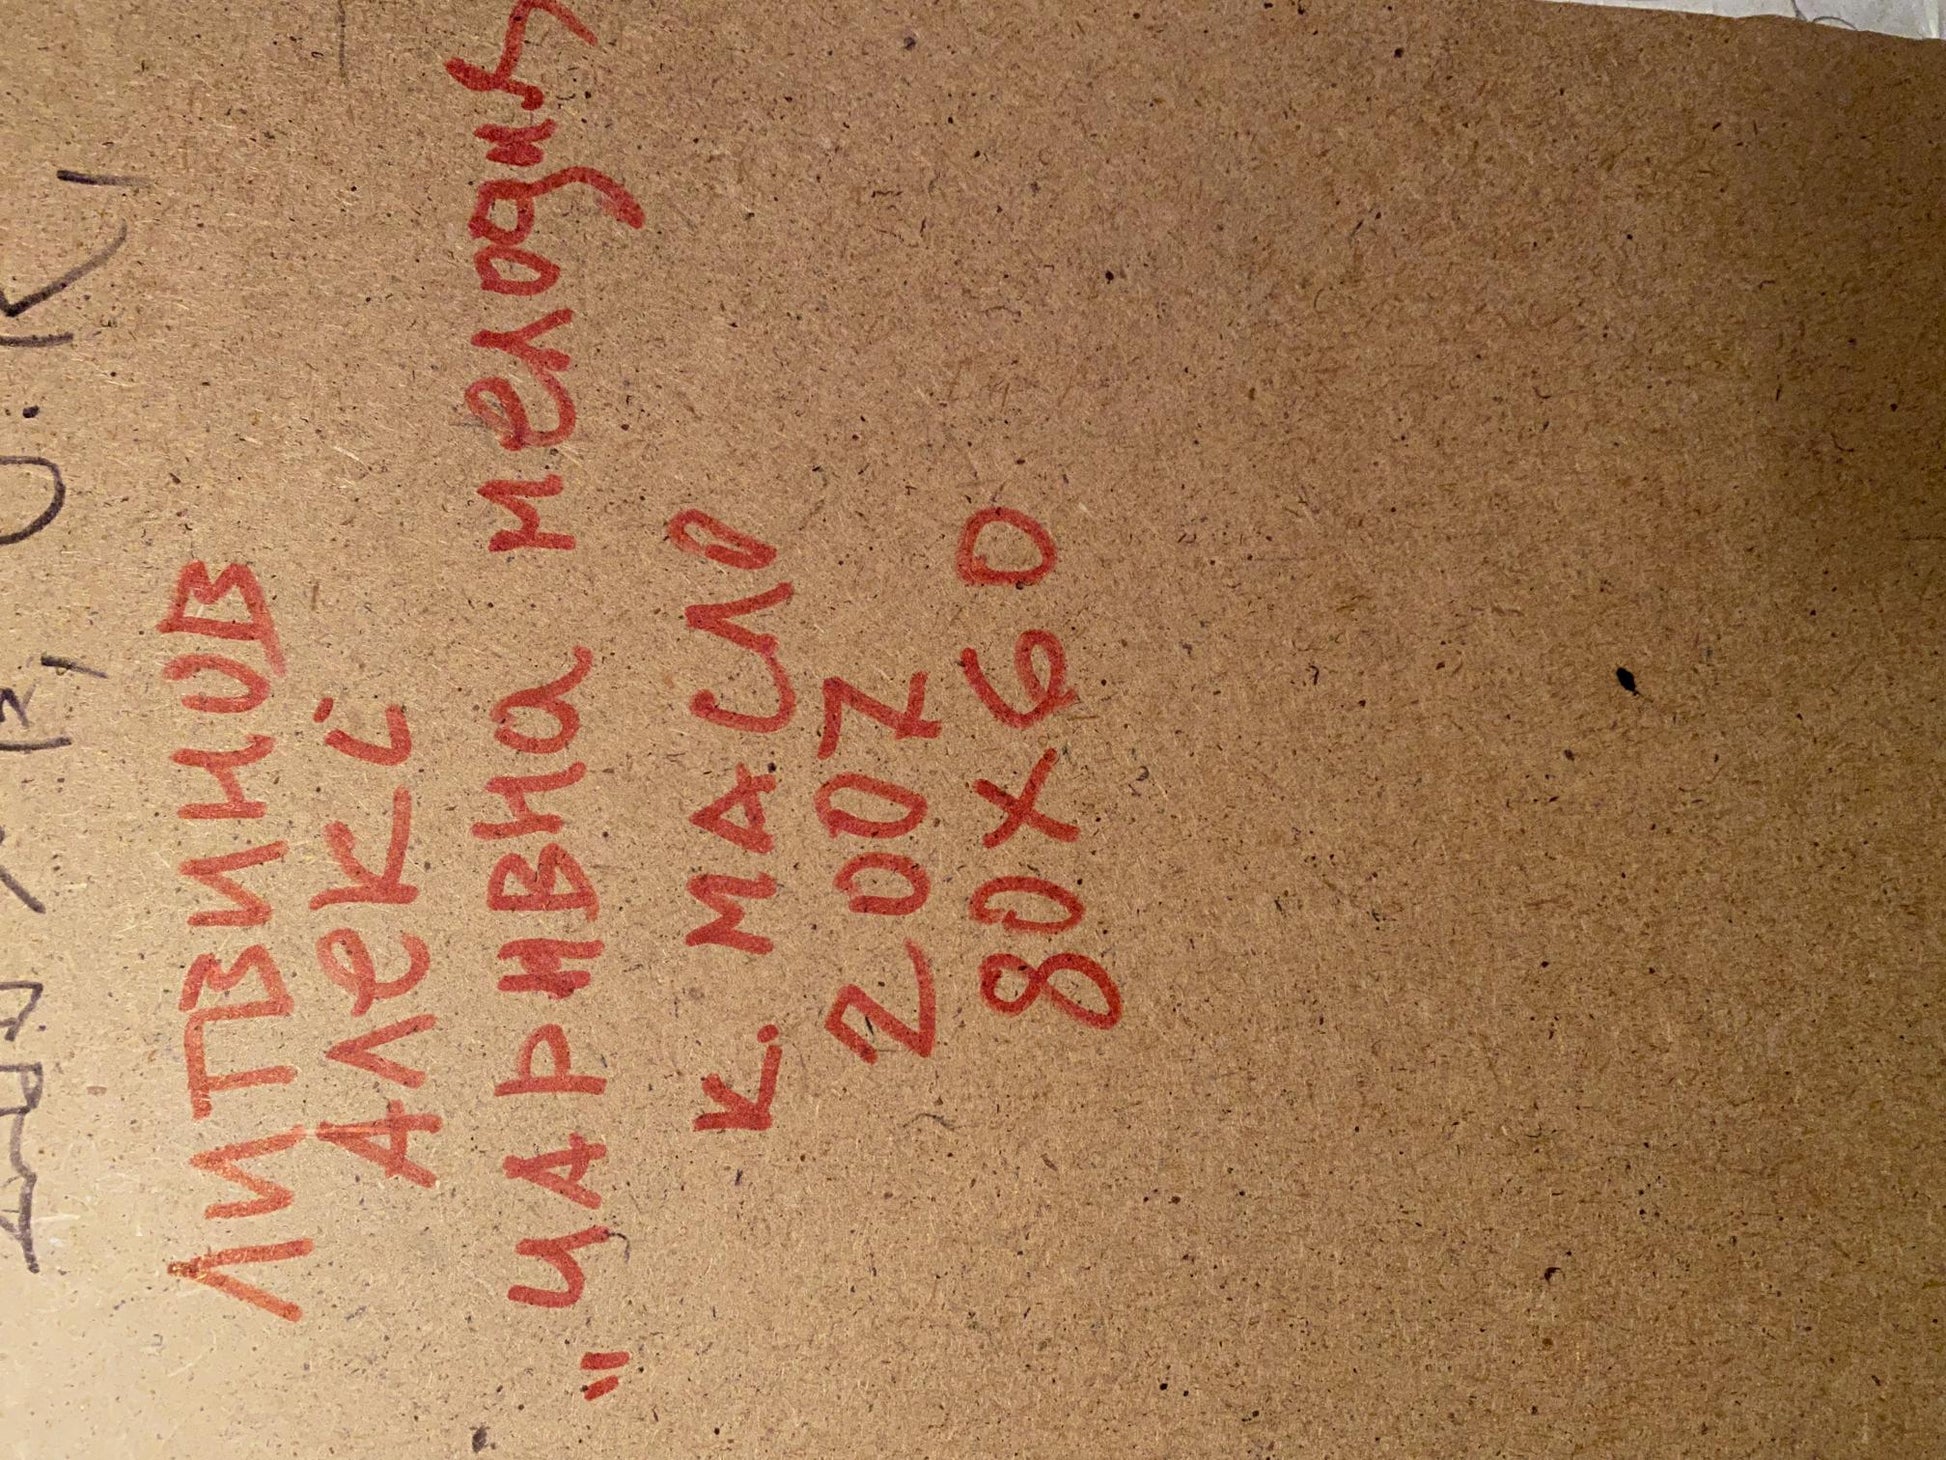 ЛИТВИНОВ
Алекс
"ЧАРИВНа мелодия
К. МАСЛО
2007
80х60